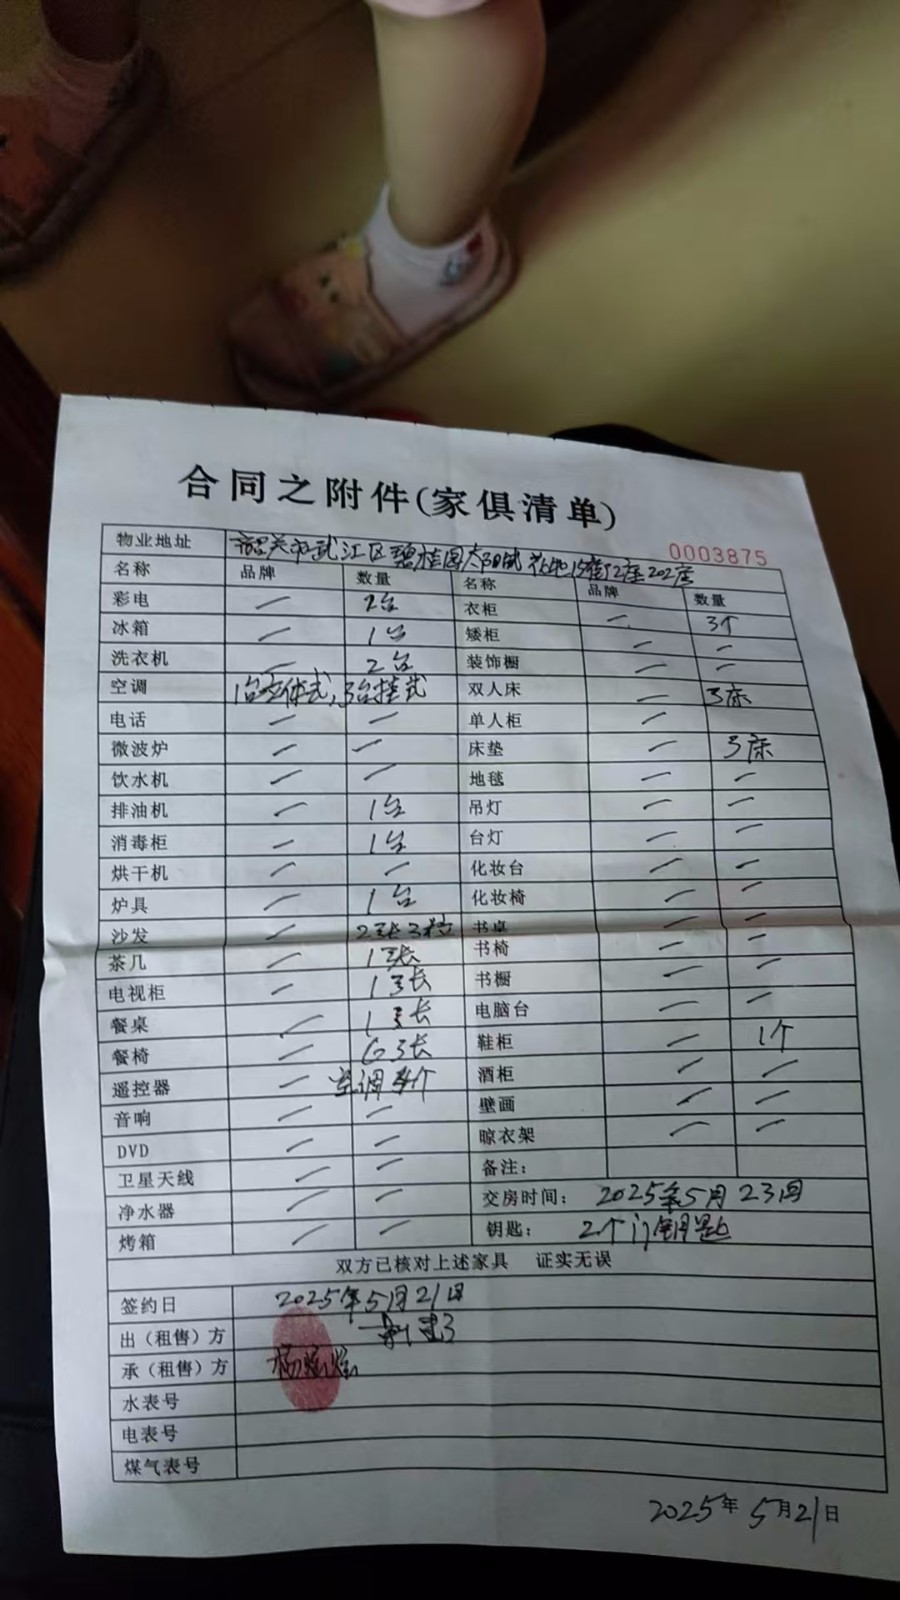 合同之附件(家俱清单)
0003875
物业地址 韶关市武江区碧桂园太阳城 15街12座202房
名称 品牌 数量 名称 品牌 数量
彩电 — 2台 衣柜 — 3个
冰箱 — 1台 矮柜 — —
洗衣机 — 2台 装饰橱 — —
空调 1台立体式,3台挂式 双人床 — 3床
电话 — — 单人柜 —
微波炉 — — 床垫 — 3床
饮水机 — — 地毯 — —
排油机 — 1台 吊灯 — —
消毒柜 — 1台 台灯 — —
烘干机 — — 化妆台 — —
炉具 — 1台 化妆椅 — —
沙发 — 2张3 书桌 — —
茶几 — 1张 书椅 — —
电视柜 — 1张 书橱 — —
餐桌 — 1张 电脑台 — —
餐椅 — 6张 鞋柜 — 1个
遥控器 — 空调 个 酒柜 — —
音响 — — 壁画 — —
DVD — — 晾衣架 — —
卫星天线 — — 备注:
净水器 — — 交房时间: 2025年5月23日
烤箱 — — 钥匙: 2个门钥匙
双方已核对上述家具 证实无误
签约日 2025年5月21日
出(租售)方
承(租售)方 杨
水表号
电表号
煤气表号
2025年5月21日